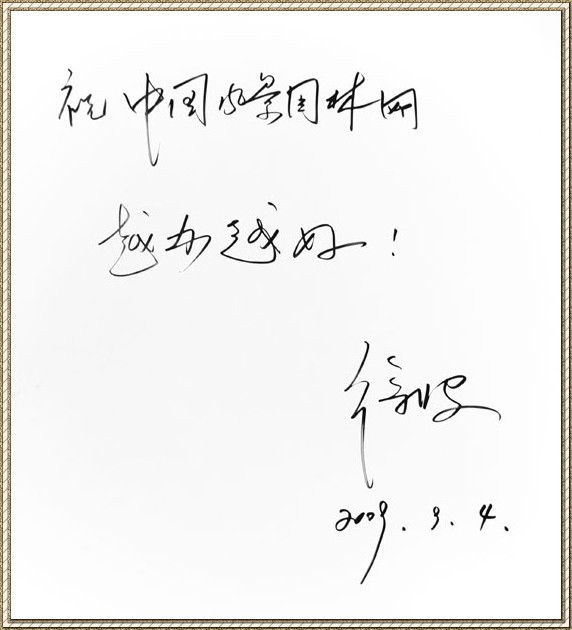 祝中国风景园林网
越办越好！
徐波
2009.3.4.